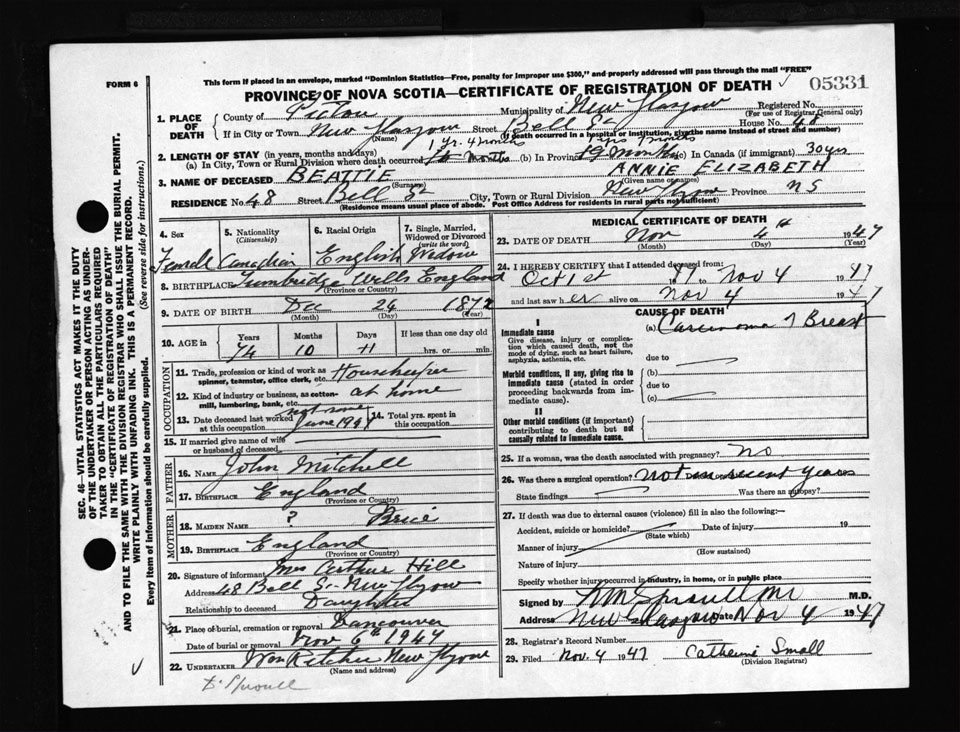 FORM 6
This form if placed in an envelope, marked "Dominion Statistics—Free, penalty for improper use $300," and properly addressed will pass through the mail "FREE"
PROVINCE OF NOVA SCOTIA—CERTIFICATE OF REGISTRATION OF DEATH
05331
SEC. 46—VITAL STATISTICS ACT MAKES IT THE DUTY
OF THE UNDERTAKER OR PERSON ACTING AS UNDER-
TAKER TO OBTAIN ALL THE PARTICULARS REQUIRED
IN THE "CERTIFICATE OF REGISTRATION OF DEATH"
AND TO FILE THE SAME WITH THE DIVISION REGISTRAR WHO SHALL ISSUE THE BURIAL PERMIT.
WRITE PLAINLY WITH UNFADING INK. THIS IS A PERMANENT RECORD.
Every item of information should be carefully supplied. (See reverse side for instructions.)
1. PLACE OF DEATH
County of Pictou Municipality of New Glasgow Registered No.
(For use of Registrar General only)
If in City or Town New Glasgow Street Bell St House No. 48
(Name) (If death occurred in a hospital or institution, give the name instead of street and number)
1 yr. 4 months
2. LENGTH OF STAY (in years, months and days)
(a) In City, Town or Rural Division where death occurred months (b) In Province 19 months (c) In Canada (if immigrant) 30 yrs
3. NAME OF DECEASED BEATTIE ANNIE ELIZABETH
(Surname) (Given name or names)
RESIDENCE No. 48 Street Bell St City, Town or Rural Division New Glasgow Province NS
(Residence means usual place of abode. Post Office Address for residents in rural parts not sufficient)
4. Sex
Female
5. Nationality
(Citizenship)
Canadian
6. Racial Origin
English
7. Single, Married, Widowed or Divorced
(write the word)
Widow
8. BIRTHPLACE Tunbridge Wells England
(Province or Country)
9. DATE OF BIRTH Dec 24 1872
(Month) (Day) (Year)
10. AGE in Years Months Days If less than one day old
74 10 11 hrs. or min.
OCCUPATION
11. Trade, profession or kind of work as spinner, teamster, office clerk, etc. Housekeeper
12. Kind of industry or business, as cotton-mill, lumbering, bank, etc. at home
13. Date deceased last worked at this occupation June
14. Total yrs. spent in this occupation
15. If married give name of wife or husband of deceased
FATHER
16. NAME John Mitchell
17. BIRTHPLACE England
(Province or Country)
MOTHER
18. MAIDEN NAME ? Price
19. BIRTHPLACE England
(Province or Country)
20. Signature of informant Mrs Arthur Hill
Address 48 Bell St New Glasgow
Relationship to deceased Daughter
21. Place of burial, cremation or removal Vancouver
Date of burial or removal Nov 6th 1947
22. UNDERTAKER New Glasgow
(Name and address)
MEDICAL CERTIFICATE OF DEATH
23. DATE OF DEATH Nov 4th 1947
(Month) (Day) (Year)
24. I HEREBY CERTIFY that I attended deceased from:
Oct 1st 47 to Nov 4 1947
and last saw her alive on Nov 4 1947
CAUSE OF DEATH
I
Immediate cause
Give disease, injury or complication which caused death, not the mode of dying, such as heart failure, asphyxia, asthenia, etc.
(a) Carcinoma of Breast
due to
Morbid conditions, if any, giving rise to immediate cause (stated in order proceeding backwards from immediate cause).
(b)
due to
(c)
II
Other morbid conditions (if important) contributing to death but not causally related to immediate cause.
25. If a woman, was the death associated with pregnancy? No
26. Was there a surgical operation? Not in recent years
State findings Was there an autopsy?
27. If death was due to external causes (violence) fill in also the following:—
Accident, suicide or homicide? Date of injury 19
(State which)
Manner of injury
(How sustained)
Nature of injury
Specify whether injury occurred in industry, in home, or in public place
Signed by M.D.
Address New Glasgow Date Nov 4 1947
28. Registrar's Record Number
29. Filed Nov. 4 1947 Catherine Small
(Division Registrar)